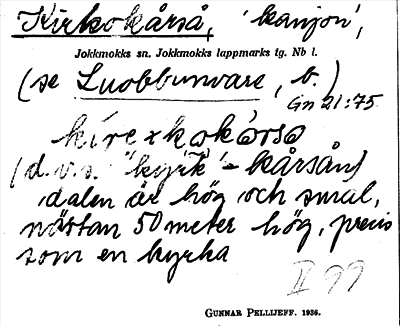 Kirkokårså, 'kanjon',
Jokkmokks sn. Jokkmokks lappmarks tg. Nb l.
(se Luobbunvare, b.)
Gn 21:75
kirexkokårså
(d.v.s. "kyrk"-kårsån)
dalen är hög och smal,
nästan 50 meter hög, precis
som en kyrka
II 99
GUNNAR PELLIJEFF. 1936.